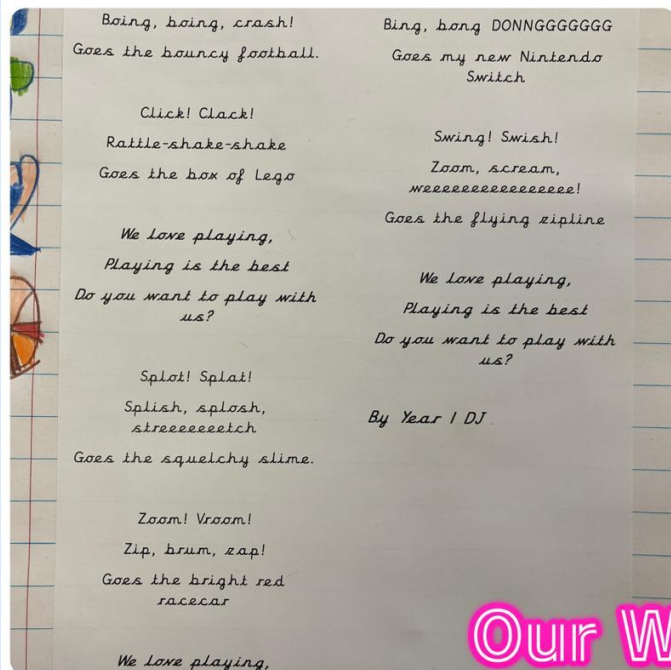 Boing, boing, crash!
Goes the bouncy football.
Click! Clack!
Rattle-shake-shake
Goes the box of Lego
We love playing,
Playing is the best
Do you want to play with
us?
Splot! Splat!
Splish, splosh,
streeeeeeetch
Goes the squelchy slime.
Zoom! Vroom!
Zip, brum, zap!
Goes the bright red
racecar
We love playing,
Bing, bong DONNGGGGGGG
Goes my new Nintendo
Switch
Swing! Swish!
Zoom, scream,
weeeeeeeeeeeeeeee!
Goes the flying zipline
We love playing,
Playing is the best
Do you want to play with
us?
By Year 1 DJ
Our W